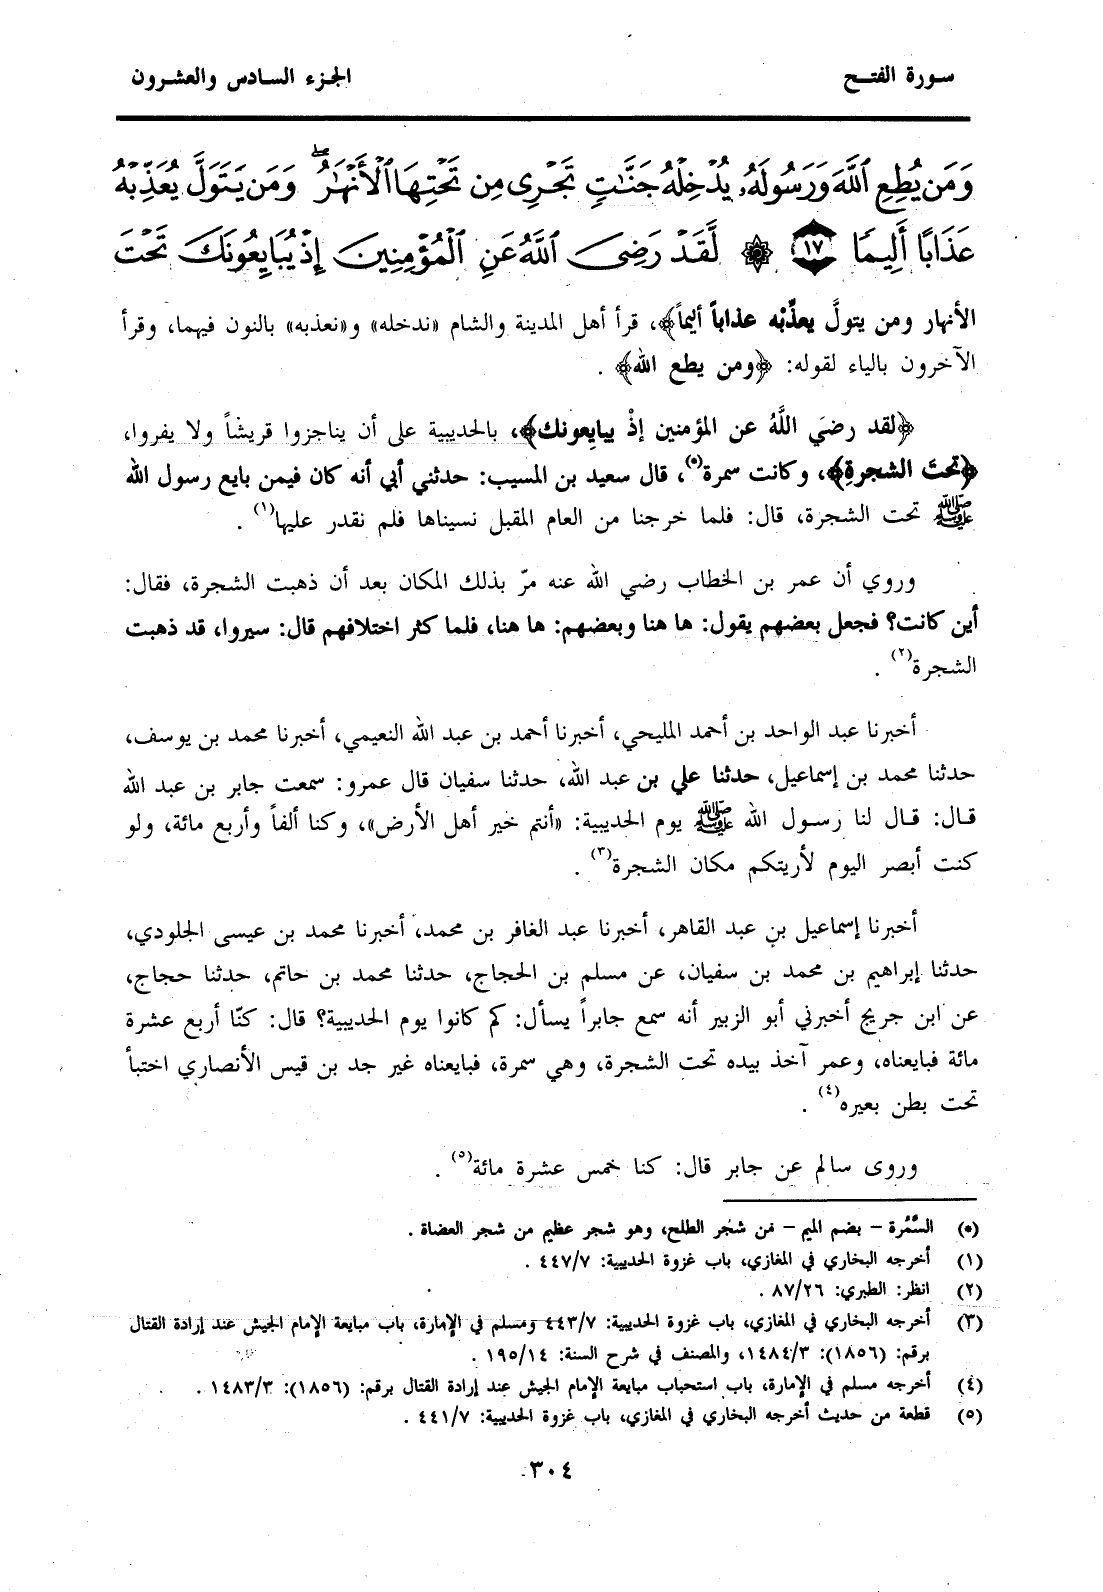 سورة الفتح
الجزء السادس والعشرون
وَمَن يُطِعِ ٱللَّهَ وَرَسُولَهُۥ يُدْخِلْهُ جَنَّٰتٍ تَجْرِى مِن تَحْتِهَا ٱلْأَنْهَٰرُ ۖ وَمَن يَتَوَلَّ يُعَذِّبْهُ
عَذَابًا أَلِيمًا ١٧ ۞ لَّقَدْ رَضِىَ ٱللَّهُ عَنِ ٱلْمُؤْمِنِينَ إِذْ يُبَايِعُونَكَ تَحْتَ
الأنهار ومن يتولَّ يعذِّبْه عذاباً أليماً﴾، قرأ أهل المدينة والشام «ندخله» و«نعذبه» بالنون فيهما، وقرأ
الآخرون بالياء لقوله: ﴿ومن يطع الله﴾ .
﴿لقد رضيَ اللَّهُ عن المؤمنين إذْ يبايِعونك﴾، بالحديبية على أن يناجزوا قريشاً ولا يفروا،
﴿تحتَ الشجرةِ﴾، وكانت سمرة(*)، قال سعيد بن المسيب: حدثني أبي أنه كان فيمن بايع رسول الله
ﷺ تحت الشجرة، قال: فلما خرجنا من العام المقبل نسيناها فلم نقدر عليها(١) .
وروي أن عمر بن الخطاب رضي الله عنه مرّ بذلك المكان بعد أن ذهبت الشجرة، فقال:
أين كانت؟ فجعل بعضهم يقول: ها هنا وبعضهم: ها هنا، فلما كثر اختلافهم قال: سيروا، قد ذهبت
الشجرة(٢) .
أخبرنا عبد الواحد بن أحمد المليحي، أخبرنا أحمد بن عبد الله النعيمي، أخبرنا محمد بن يوسف،
حدثنا محمد بن إسماعيل، حدثنا علي بن عبد الله، حدثنا سفيان قال عمرو: سمعت جابر بن عبد الله
قال: قال لنا رسول الله ﷺ يوم الحديبية: «أنتم خير أهل الأرض»، وكنا ألفاً وأربع مائة، ولو
كنت أبصر اليوم لأريتكم مكان الشجرة(٣) .
أخبرنا إسماعيل بن عبد القاهر، أخبرنا عبد الغافر بن محمد، أخبرنا محمد بن عيسى الجلودي،
حدثنا إبراهيم بن محمد بن سفيان، عن مسلم بن الحجاج، حدثنا محمد بن حاتم، حدثنا حجاج،
عن ابن جريج أخبرني أبو الزبير أنه سمع جابراً يسأل: كم كانوا يوم الحديبية؟ قال: كنّا أربع عشرة
مائة فبايعناه، وعمر آخذ بيده تحت الشجرة، وهي سمرة، فبايعناه غير جد بن قيس الأنصاري اختبأ
تحت بطن بعيره(٤) .
وروى سالم عن جابر قال: كنا خمس عشرة مائة(٥) .
(*) السَّمُرة – بضم الميم – من شجر الطلح، وهو شجر عظيم من شجر العضاة .
(١) أخرجه البخاري في المغازي، باب غزوة الحديبية: ٤٤٧/٧ .
(٢) انظر: الطبري: ٨٧/٢٦ .
(٣) أخرجه البخاري في المغازي، باب غزوة الحديبية: ٤٤٣/٧ ومسلم في الإمارة، باب مبايعة الإمام الجيش عند إرادة القتال
برقم: (١٨٥٦): ١٤٨٤/٣، والمصنف في شرح السنة: ١٩٥/١٤ .
(٤) أخرجه مسلم في الإمارة، باب استحباب مبايعة الإمام الجيش عند إرادة القتال برقم: (١٨٥٦): ١٤٨٣/٣ .
(٥) قطعة من حديث أخرجه البخاري في المغازي، باب غزوة الحديبية: ٤٤١/٧ .
٣٠٤